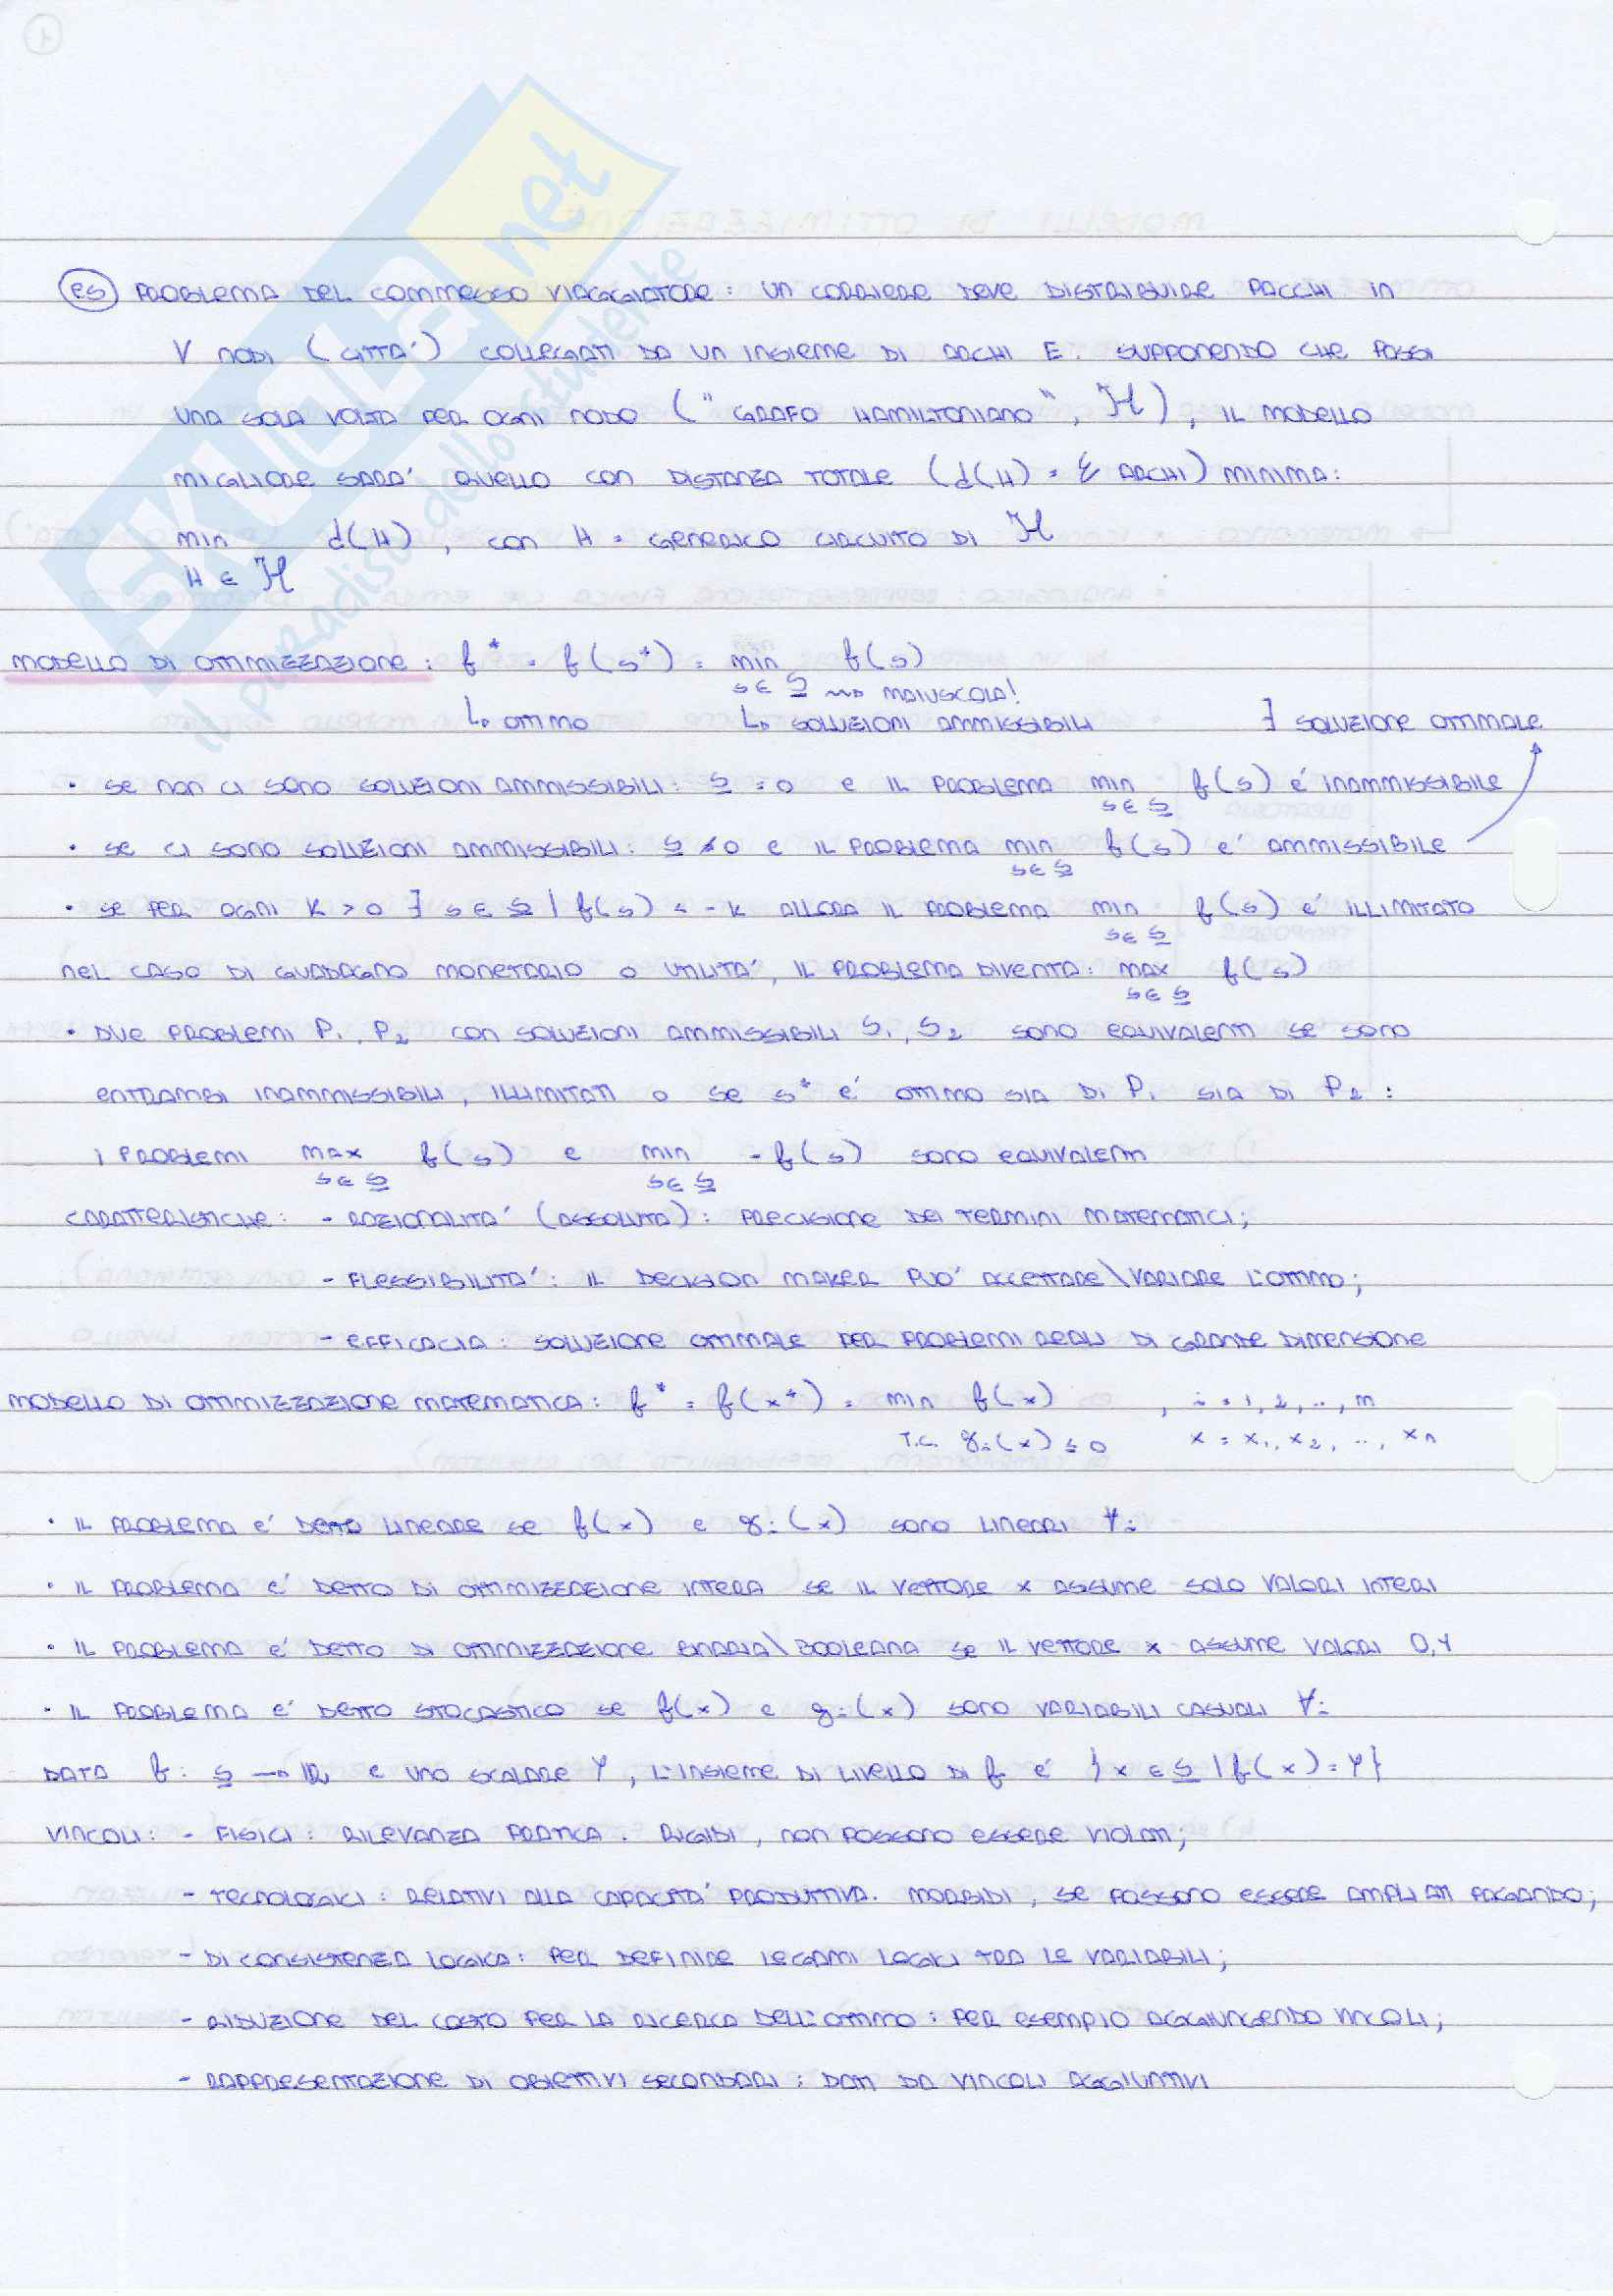 1
SKUOLA.net
il paradiso dello studente
es PROBLEMA DEL COMMESSO VIAGGIATORE: UN CORRIERE DEVE DISTRIBUIRE PACCHI IN
V NODI (CITTA') COLLEGATI DA UN INSIEME DI ARCHI E. SUPPONENDO CHE PASSI
UNA SOLA VOLTA PER OGNI NODO ("GRAFO HAMILTONIANO", ℋ), IL MODELLO
MIGLIORE SARA' QUELLO CON DISTANZA TOTALE (d(H) = Σ ARCHI) MINIMA:
min d(H), CON H = GENERICO CIRCUITO DI ℋ
H ∈ ℋ
MODELLO DI OTTIMIZZAZIONE: f* = f(s*) = min f(s)
s ∈ S → MAIUSCOLA!
↳ OTTIMO ↳ SOLUZIONI AMMISSIBILI ∃ SOLUZIONE OTTIMALE
• SE NON CI SONO SOLUZIONI AMMISSIBILI: S = 0 E IL PROBLEMA min f(s) E' INAMMISSIBILE
s ∈ S
• SE CI SONO SOLUZIONI AMMISSIBILI: S ≠ 0 E IL PROBLEMA min f(s) E' AMMISSIBILE
s ∈ S
• SE PER OGNI K > 0 ∃ s ∈ S | f(s) < -K ALLORA IL PROBLEMA min f(s) E' ILLIMITATO
s ∈ S
NEL CASO DI GUADAGNO MONETARIO O UTILITA', IL PROBLEMA DIVENTA: max f(s)
s ∈ S
• DUE PROBLEMI P₁, P₂ CON SOLUZIONI AMMISSIBILI S₁, S₂ SONO EQUIVALENTI SE SONO
ENTRAMBI INAMMISSIBILI, ILLIMITATI O SE s* E' OTTIMO SIA DI P₁ SIA DI P₂:
I PROBLEMI max f(s) E min -f(s) SONO EQUIVALENTI
s ∈ S s ∈ S
CARATTERISTICHE: - RAZIONALITA' (ASSOLUTA): PRECISIONE DEI TERMINI MATEMATICI;
- FLESSIBILITA': IL DECISION MAKER PUO' ACCETTARE\VARIARE L'OTTIMO;
- EFFICACIA: SOLUZIONE OTTIMALE PER PROBLEMI REALI DI GRANDE DIMENSIONE
MODELLO DI OTTIMIZZAZIONE MATEMATICA: f* = f(x*) = min f(x) , i = 1, 2, .., m
T.C. gᵢ(x) ≤ 0 x = x₁, x₂, .., xₙ
• IL PROBLEMA E' DETTO LINEARE SE f(x) E gᵢ(x) SONO LINEARI ∀i
• IL PROBLEMA E' DETTO DI OTTIMIZZAZIONE INTERA SE IL VETTORE x ASSUME SOLO VALORI INTERI
• IL PROBLEMA E' DETTO DI OTTIMIZZAZIONE BINARIA\BOOLEANA SE IL VETTORE x ASSUME VALORI 0,1
• IL PROBLEMA E' DETTO STOCASTICO SE f(x) E gᵢ(x) SONO VARIABILI CASUALI ∀i
DATA f: S → ℝ, E UNO SCALARE γ, L'INSIEME DI LIVELLO DI f E' {x ∈ S | f(x) = γ}
VINCOLI: - FISICI: RILEVANZA PRATICA. RIGIDI, NON POSSONO ESSERE VIOLATI;
- TECNOLOGICI: RELATIVI ALLA CAPACITA' PRODUTTIVA. MORBIDI, SE POSSONO ESSERE AMPLIATI PAGANDO;
- DI CONSISTENZA LOGICA: PER DEFINIRE LEGAMI LOGICI TRA LE VARIABILI;
- RIDUZIONE DEL COSTO PER LA RICERCA DELL'OTTIMO: PER ESEMPIO AGGIUNGENDO VINCOLI;
- RAPPRESENTAZIONE DI OBIETTIVI SECONDARI: DATI DA VINCOLI AGGIUNTIVI